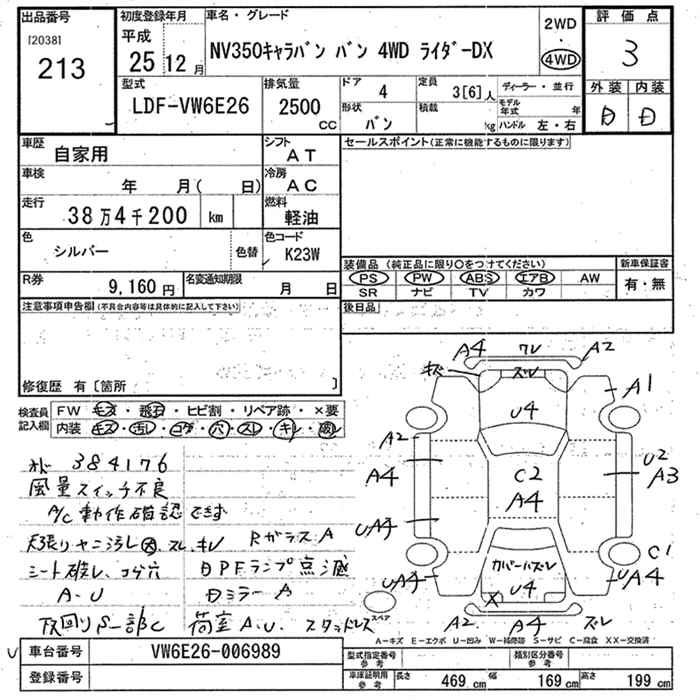 出品番号
[2038]
213
初度登録年月
平成
25年12月
車名・グレード
NV350キャラバン バン 4WD ライダーDX
2WD
・
4WD
評価点
3
外装 内装
D D
型式
LDF-VW6E26
排気量
2500
cc
ドア 4
定員 3[6]人
形状 バン
積載 kg
ディーラー・並行
モデル年式 年
ハンドル 左・右
車歴
自家用
シフト
AT
車検
年 月( 日)
冷房
AC
走行
38万4千200 km
燃料
軽油
色
シルバー
色替
色コード
K23W
R券
9,160円
名変通知期限
月 日
セールスポイント(正常に機能するものに限ります)
装備品(純正品に限り○をつけてください)
PS PW ABS エアB AW
SR ナビ TV カワ
新車保証書
有・無
後日品
注意事項申告欄(不具合内容等は具体的に記入して下さい)
修復歴 有〔箇所 〕
検査員記入欄
FW キズ・飛石・ヒビ割・リペア跡・×要
内装 キズ・汚レ・コゲ・穴・スレ・キレ・破レ
メト 384176
風量スイッチ不良
A/C動作確認できず
天張りヤニ汚レ大、スレ、キレ
シート破レ、コゲ穴
A・U
下回りS一部C
Rガラス A
DPFランプ点滅
Dミラー A
荷室 A、U、スタッドレス
A4 ワレ A2
キズ ズレ
A1
U4
A2
A4
U2
A3
C2
A4
UA4
C1
カバーハズレ
UA4
UA4
X U4
スペア
A2 A4 ズレ
A－キズ E－エクボ U－凹み W－補修跡 S－サビ C－腐食 XX－交換済
車台番号
VW6E26-006989
登録番号
型式指定番号
参考
類別区分番号
参考
車庫証明用
参考
長さ 469 cm 幅 169 cm 高さ 199 cm